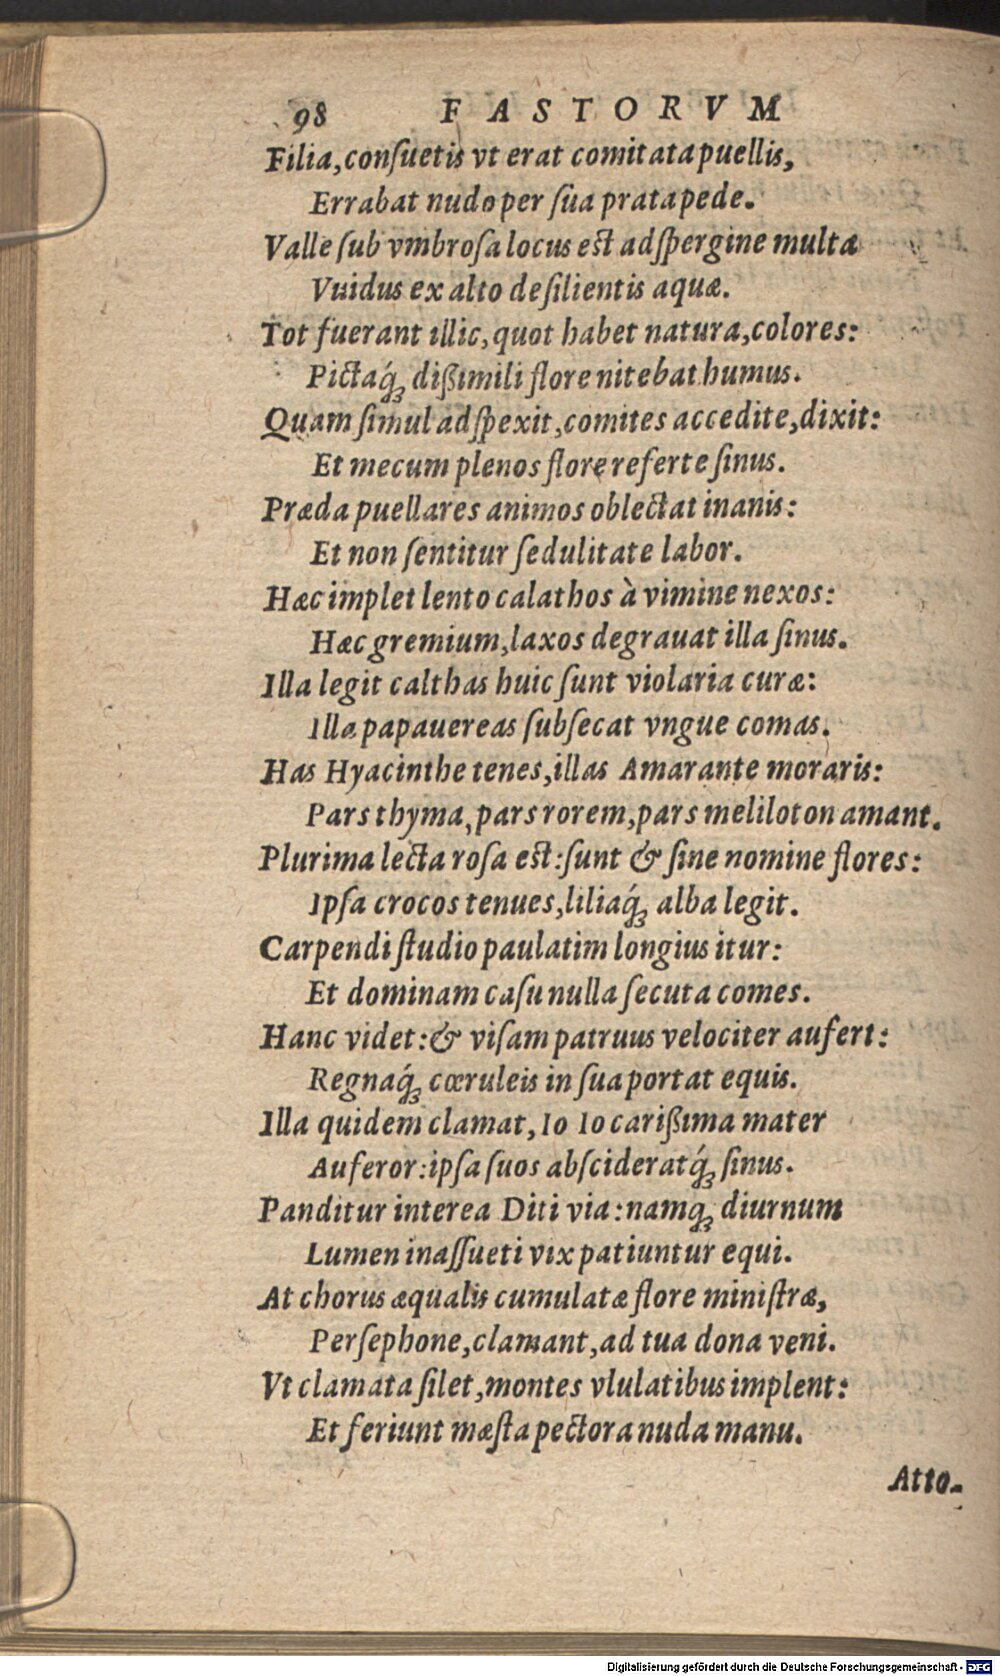 98 FASTORVM
Filia, conſuetis vt erat comitata puellis,
Errabat nudo per ſua prata pede.
Valle ſub vmbroſa locus eſt adſpergine multa
Vuidus ex alto deſilientis aquæ.
Tot fuerant illic, quot habet natura, colores:
Pictaq́ꝫ dißimili flore nitebat humus.
Quam ſimul adſpexit, comites accedite, dixit:
Et mecum plenos flore referte ſinus.
Præda puellares animos oblectat inanis:
Et non ſentitur ſedulitate labor.
Hæc implet lento calathos à vimine nexos:
Hæc gremium, laxos degrauat illa ſinus.
Illa legit calthas huic ſunt violaria curæ:
Illa papauereas ſubſecat vngue comas.
Has Hyacinthe tenes, illas Amarante moraris:
Pars thyma, pars rorem, pars meliloton amant.
Plurima lecta roſa eſt: ſunt & ſine nomine flores:
Ipſa crocos tenues, liliaq́ꝫ alba legit.
Carpendi ſtudio paulatim longius itur:
Et dominam caſu nulla ſecuta comes.
Hanc videt: & viſam patruus velociter aufert:
Regnaq́ꝫ cœruleis in ſua portat equis.
Illa quidem clamat, Io Io carißima mater
Auferor: ipſa ſuos abſcideratq́ꝫ ſinus.
Panditur interea Diti via: namq́ꝫ diurnum
Lumen inaſſueti vix patiuntur equi.
At chorus æqualis cumulatæ flore miniſtræ,
Perſephone, clamant, ad tua dona veni.
Vt clamata ſilet, montes vlulatibus implent:
Et feriunt mæſta pectora nuda manu.
Atto-
Digitalisierung gefördert durch die Deutsche Forschungsgemeinschaft - DFG